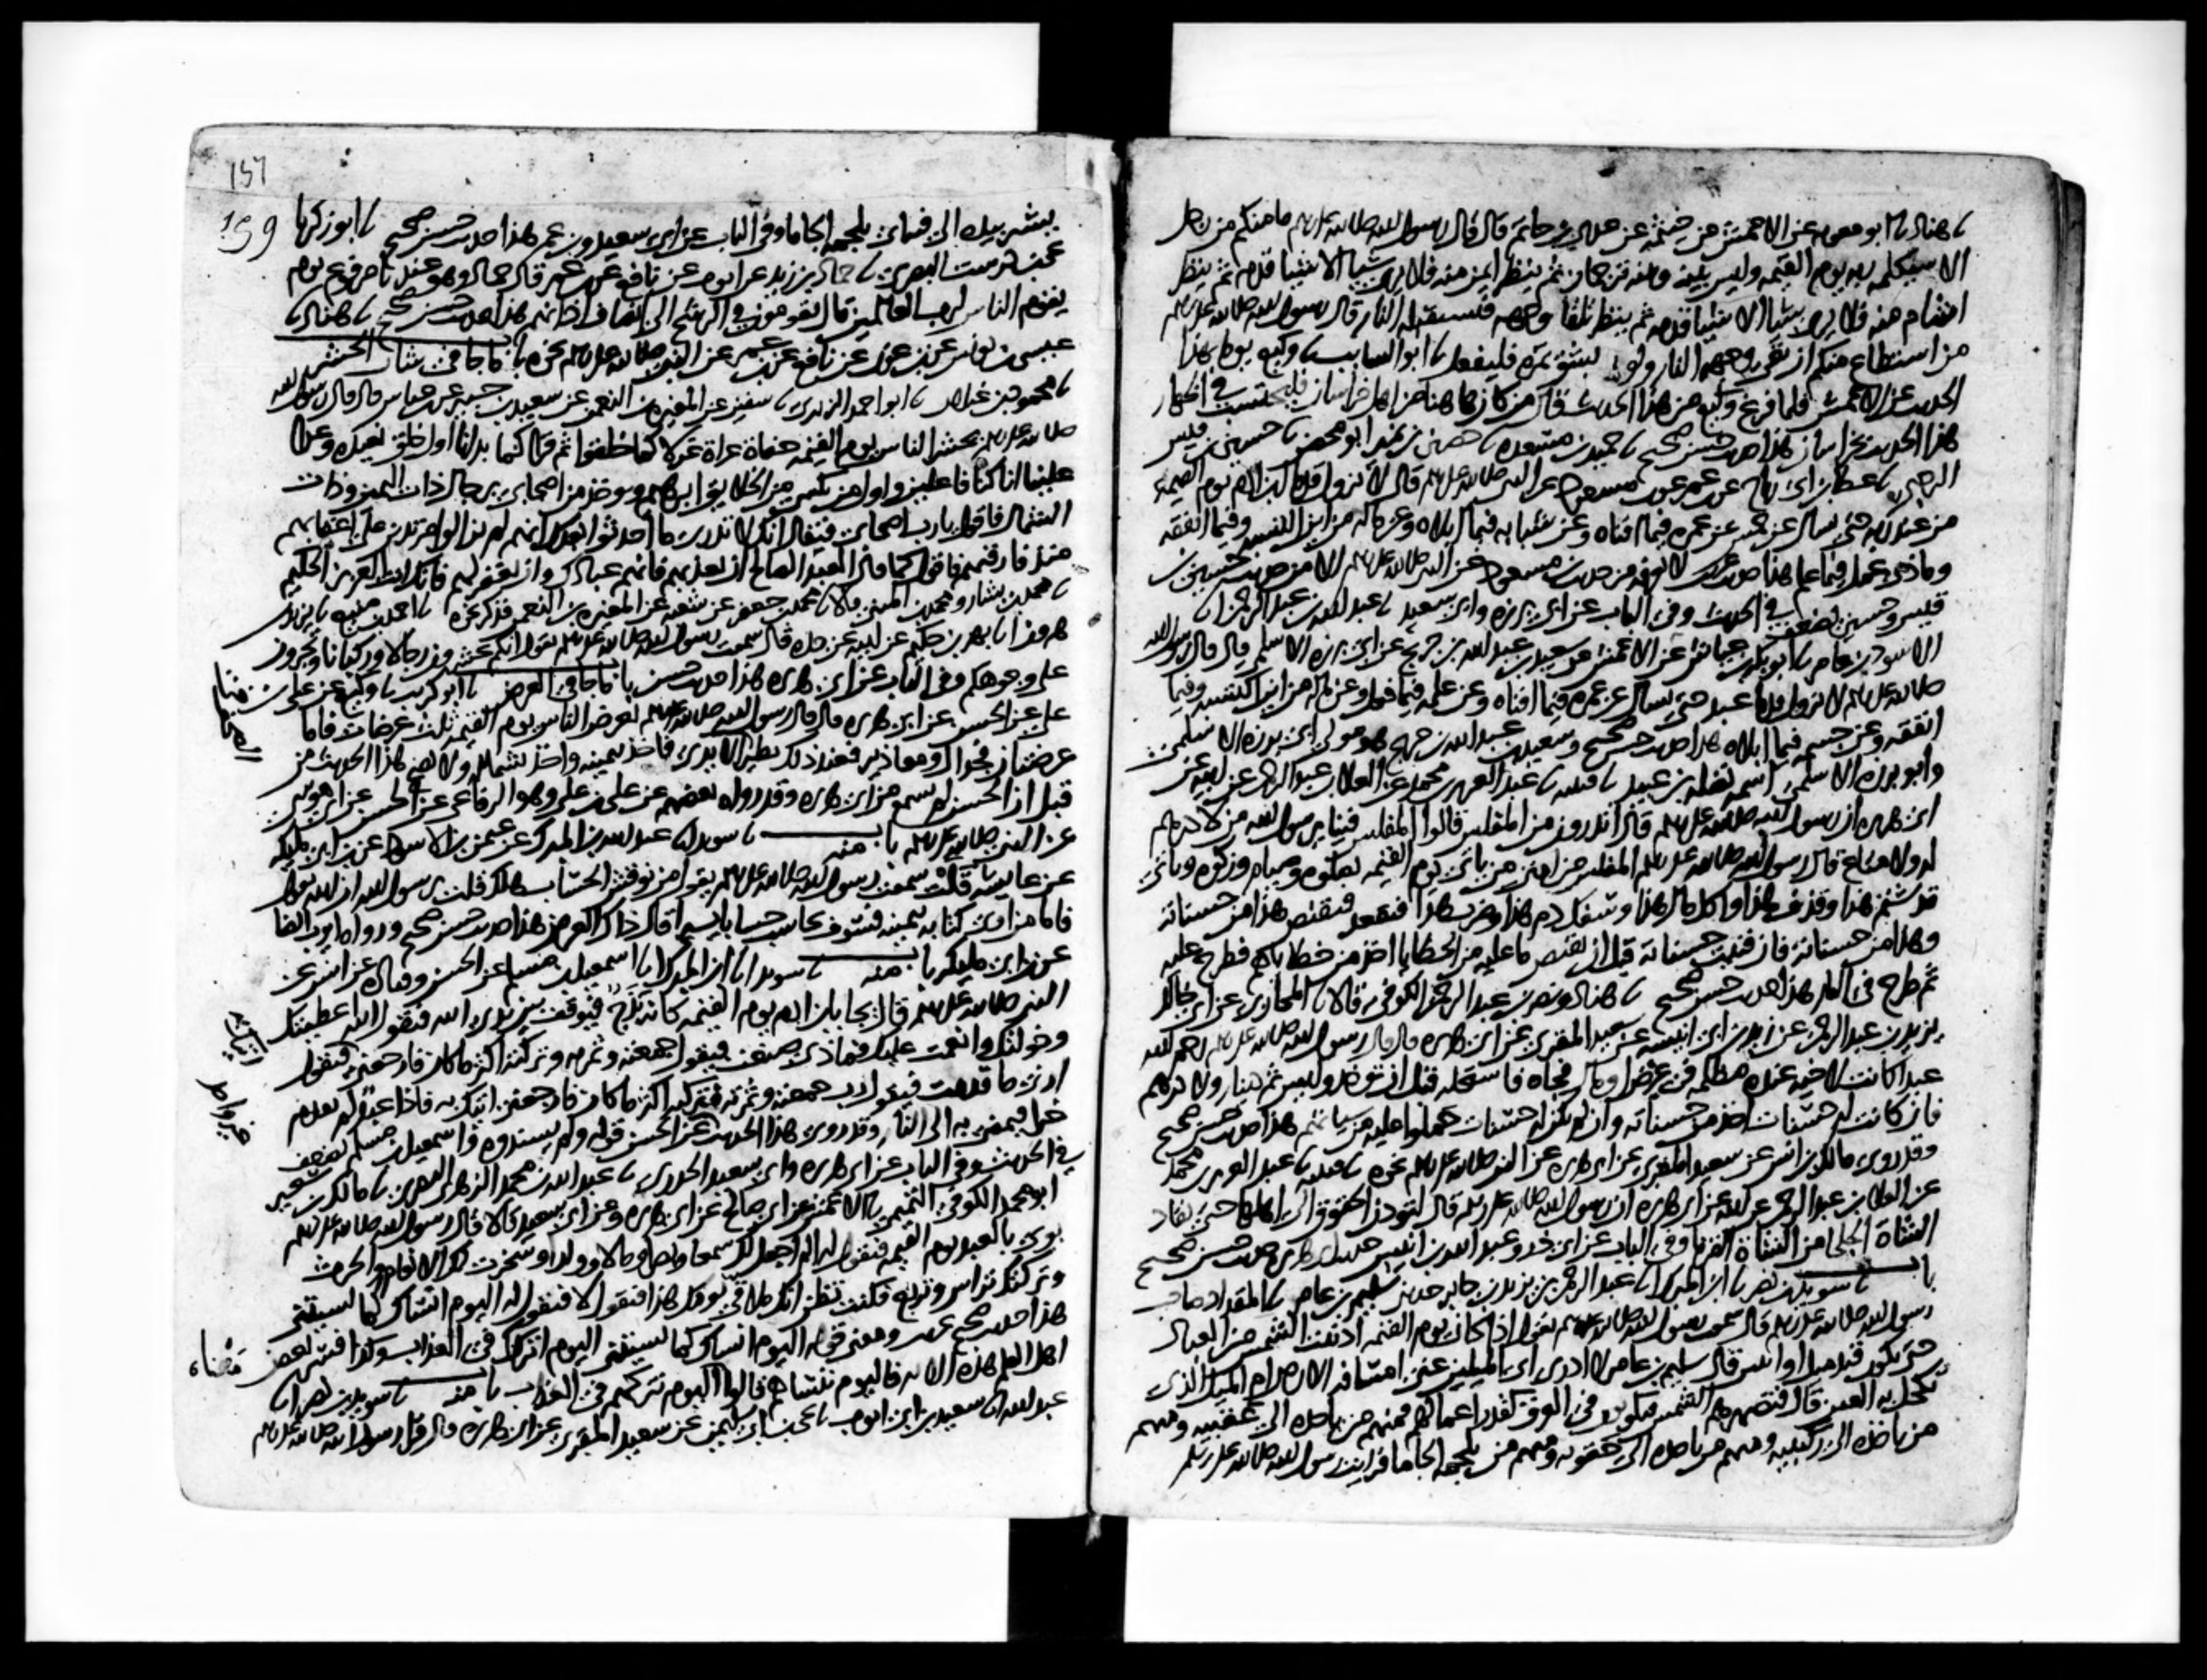 نا هناد نا ابو معوية عن الاعمش عن خيثمة عن عدي بن حاتم قال قال رسول الله صلى الله عليه وسلم ما منكم من رجل
الا سيكلمه ربه يوم القيمة وليس بينه وبينه ترجمان ثم ينظر ايمن منه فلا يرى شيا الا شيا قدمه ثم ينظر
اشام منه فلا يرى شيا الا شيا قدمه ثم ينظر تلقا وجهه فتستقبله النار قال رسول الله صلى الله عليه وسلم
من استطاع منكم ان يقي وجهه النار ولو بشق تمرة فليفعل نا ابو السايب نا وكيع يوما بهذا
الحديث عن الاعمش فلما فرغ وكيع من هذا الحديث قال من كان هاهنا من اهل خراسان فليحتسب في اظهار
هذا الحديث بخراسان هذا حديث حسن صحيح نا حميد بن مسعدة نا حصين بن نمير ابو محصن نا حسين بن قيس
الرحبي نا عطا بن ابي رباح عن بن عمر عن بن مسعود عن النبي صلى الله عليه وسلم قال لا تزول قدما ابن ادم يوم القيمة
من عند ربه حتى يسال عن خمس عن عمره فيما افناه وعن شبابه فيما ابلاه وعن ماله من اين اكتسبه وفيما انفقه
وماذا عمل فيما علم هذا حديث غريب لا نعرفه من حديث بن مسعود عن النبي صلى الله عليه وسلم الا من حديث حسين بن
قيس وحسين يضعف في الحديث وفي الباب عن ابي برزة وابي سعيد نا عبد الله بن عبد الرحمن انا
الاسود بن عامر نا ابو بكر بن عياش عن الاعمش عن سعيد بن عبد الله بن جريج عن ابي برزة الاسلمي قال قال رسول الله
صلى الله عليه وسلم لا تزول قدما عبد حتى يسال عن عمره فيما افناه وعن علمه فيما فعل وعن ماله من اين اكتسبه وفيما
انفقه وعن جسمه فيما ابلاه هذا حديث حسن صحيح وسعيد بن عبد الله بن جريج هو مولى ابي برزة الاسلمي
وابو برزة الاسلمي اسمه نضلة بن عبيد نا قتيبة نا عبد العزيز بن محمد عن العلا بن عبد الرحمن عن ابيه عن
ابي هريرة ان رسول الله صلى الله عليه وسلم قال اتدرون من المفلس قالوا المفلس فينا يرسول الله من لا درهم
له ولا متاع قال رسول الله صلى الله عليه وسلم المفلس من امتي من ياتي يوم القيمة بصلوة وصيام وزكوة وياتي
قد شتم هذا وقذف هذا واكل مال هذا وسفك دم هذا وضرب هذا فيقعد فيقتص هذا من حسناته
وهذا من حسناته فان فنيت حسناته قبل ان يقتص ما عليه من الخطايا اخذ من خطاياهم فطرح عليه
ثم طرح في النار هذا حديث حسن صحيح نا هناد ونصر بن عبد الرحمن الكوفي قالا نا المحاربي عن ابي خالد
يزيد بن عبد الرحمن عن زيد بن ابي انيسة عن سعيد المقبري عن ابي هريرة قال قال رسول الله صلى الله عليه وسلم رحم الله
عبدا كانت لاخيه عنده مظلمة في عرض او مال فجاه فاستحله قبل ان يوخذ وليس ثم دينار ولا درهم
فان كانت له حسنات اخذ من حسناته وان لم تكن له حسنات حملوا عليه من سياتهم هذا حديث حسن صحيح
وقد روى مالك بن انس عن سعيد المقبري عن ابي هريرة عن النبي صلى الله عليه وسلم نحوه نا قتيبة نا عبد العزيز بن محمد
عن العلا بن عبد الرحمن عن ابيه عن ابي هريرة ان رسول الله صلى الله عليه وسلم قال لتودن الحقوق الى اهلها حتى تقاد
الشاة الجلحا من الشاة القرنا وفي الباب عن ابي ذر وعبد الله بن انيس حديث ابي هريرة حديث حسن صحيح
باب نا سويد بن نصر نا ابن المبرك نا عبد الرحمن بن يزيد بن جابر حدثني سليم بن عامر نا المقداد صاحب
رسول الله صلى الله عليه وسلم قال سمعت رسول الله صلى الله عليه وسلم يقول اذا كان يوم القيمة ادنيت الشمس من العباد
حتى تكون قيد ميل او اثنين قال سليم بن عامر لا ادري اي الميلين عنى امسافة الارض ام الميل الذي
تكحل به العين قال فتصهرهم الشمس فيكونون في العرق كقدر اعمالهم فمنهم من ياخذه الى عقبيه ومنهم
من ياخذه الى ركبتيه ومنهم من ياخذه الى حقويه ومنهم من يلجمه الجاما فرايت رسول الله صلى الله عليه وسلم
157
159
يشير بيده الى فيه اي يلجمه الجاما وفي الباب عن ابي سعيد وبن عمر هذا حديث حسن صحيح نا ابو زكريا
يحيى بن درست البصري نا حماد بن زيد عن ايوب عن نافع عن بن عمر قال حماد وهو عندنا مرفوع يوم
يقوم الناس لرب العالمين قال يقومون في الرشح الى انصاف اذانهم هذا حديث حسن صحيح نا هناد نا
عيسى بن يونس عن بن عون عن نافع عن بن عمر عن النبي صلى الله عليه وسلم نحوه باب ما جا في شان الحشر
نا محمود بن غيلان نا ابو احمد الزبيري نا سفين عن المغيرة بن النعمن عن سعيد بن جبير عن بن عباس قال قال رسول الله
صلى الله عليه وسلم يحشر الناس يوم القيمة حفاة عراة غرلا كما خلقوا ثم قرا كما بدانا اول خلق نعيده وعدا
علينا انا كنا فاعلين واول من يكسى من الخلايق ابرهيم ويوخذ من اصحابي برجال ذات اليمين وذات
الشمال فاقول يارب اصحابي فيقال انك لا تدري ما احدثوا بعدك انهم لم يزالوا مرتدين على اعقابهم
منذ فارقتهم فاقول كما قال العبد الصالح ان تعذبهم فانهم عبادك وان تغفر لهم فانك انت العزيز الحكيم
نا محمد بن بشار ومحمد بن المثنى قالا نا محمد بن جعفر عن شعبة عن المغيرة بن النعمن فذكر نحوه نا احمد بن منيع نا يزيد بن
هرون انا بهز بن حكيم عن ابيه عن جده قال سمعت رسول الله صلى الله عليه وسلم يقول انكم تحشرون رجالا وركبانا وتجرون
على وجوهكم وفي الباب عن ابي هريرة هذا حديث حسن باب ما جا في العرض نا ابو كريب نا وكيع عن علي بن
علي عن الحسن عن ابي هريرة قال قال رسول الله صلى الله عليه وسلم يعرض الناس يوم القيمة ثلث عرضات فاما
عرضتان فجدال ومعاذير فعند ذلك تطير الصحف في الايدي فاخذ بيمينه واخذ بشماله ولا يصح هذا الحديث من
قبل ان الحسن لم يسمع من ابي هريرة وقد رواه بعضهم عن علي بن علي وهو الرفاعي عن الحسن عن ابي موسى
عن النبي صلى الله عليه وسلم باب منه نا سويد انا عبد الله بن المبرك عن عثمن بن الاسود عن بن ابي مليكة
عن عايشة قالت سمعت رسول الله صلى الله عليه وسلم يقول من نوقش الحساب هلك قلت يرسول الله ان الله يقول
فاما من اوتي كتابه بيمينه فسوف يحاسب حسابا يسيرا قال ذاك العرض هذا حديث حسن صحيح ورواه ايوب ايضا
عن بن ابي مليكة باب منه نا سويد انا ابن المبرك انا اسمعيل بن مسلم عن الحسن وقتادة عن انس عن
النبي صلى الله عليه وسلم قال يجا بابن ادم يوم القيمة كانه بذج فيوقف بين يدي الله فيقول الله اعطيتك
وخولتك وانعمت عليك فماذا صنعت فيقول جمعته وثمرته وتركته اكثر ما كان فارجعني فيقول
ارني ما قدمت فيقول يارب جمعته وثمرته فتركته اكثر ما كان فارجعني اتيك به فاذا عبد لم يقدم
خيرا فيمضى به الى النار وقد روى هذا الحديث عن الحسن قوله ولم يسندوه واسمعيل بن مسلم يضعف
في الحديث وفي الباب عن ابي هريرة وابي سعيد الخدري نا عبد الله بن محمد الزهري البصري نا مالك بن سعير
ابو محمد الكوفي التميمي نا الاعمش عن ابي صالح عن ابي هريرة وعن ابي سعيد قالا قال رسول الله صلى الله عليه وسلم
يوتى بالعبد يوم القيمة فيقول له الم اجعل لك سمعا وبصرا ومالا وولدا وسخرت لك الانعام والحرث
وتركتك تراس وتربع فكنت تظن انك ملاقي يومك هذا فيقول لا فيقول له اليوم انساك كما نسيتني
هذا حديث صحيح غريب ومعنى قوله اليوم انساك كما نسيتني اليوم اتركك في العذاب وكذا فسر بعض
اهل العلم هذه الاية فاليوم ننساهم قالوا اليوم نتركهم في العذاب باب منه نا سويد بن نصر انا
عبد الله انا سعيد بن ابي ايوب نا يحيى بن ابي سليمن عن سعيد المقبري عن ابي هريرة قال قرا رسول الله صلى الله عليه وسلم